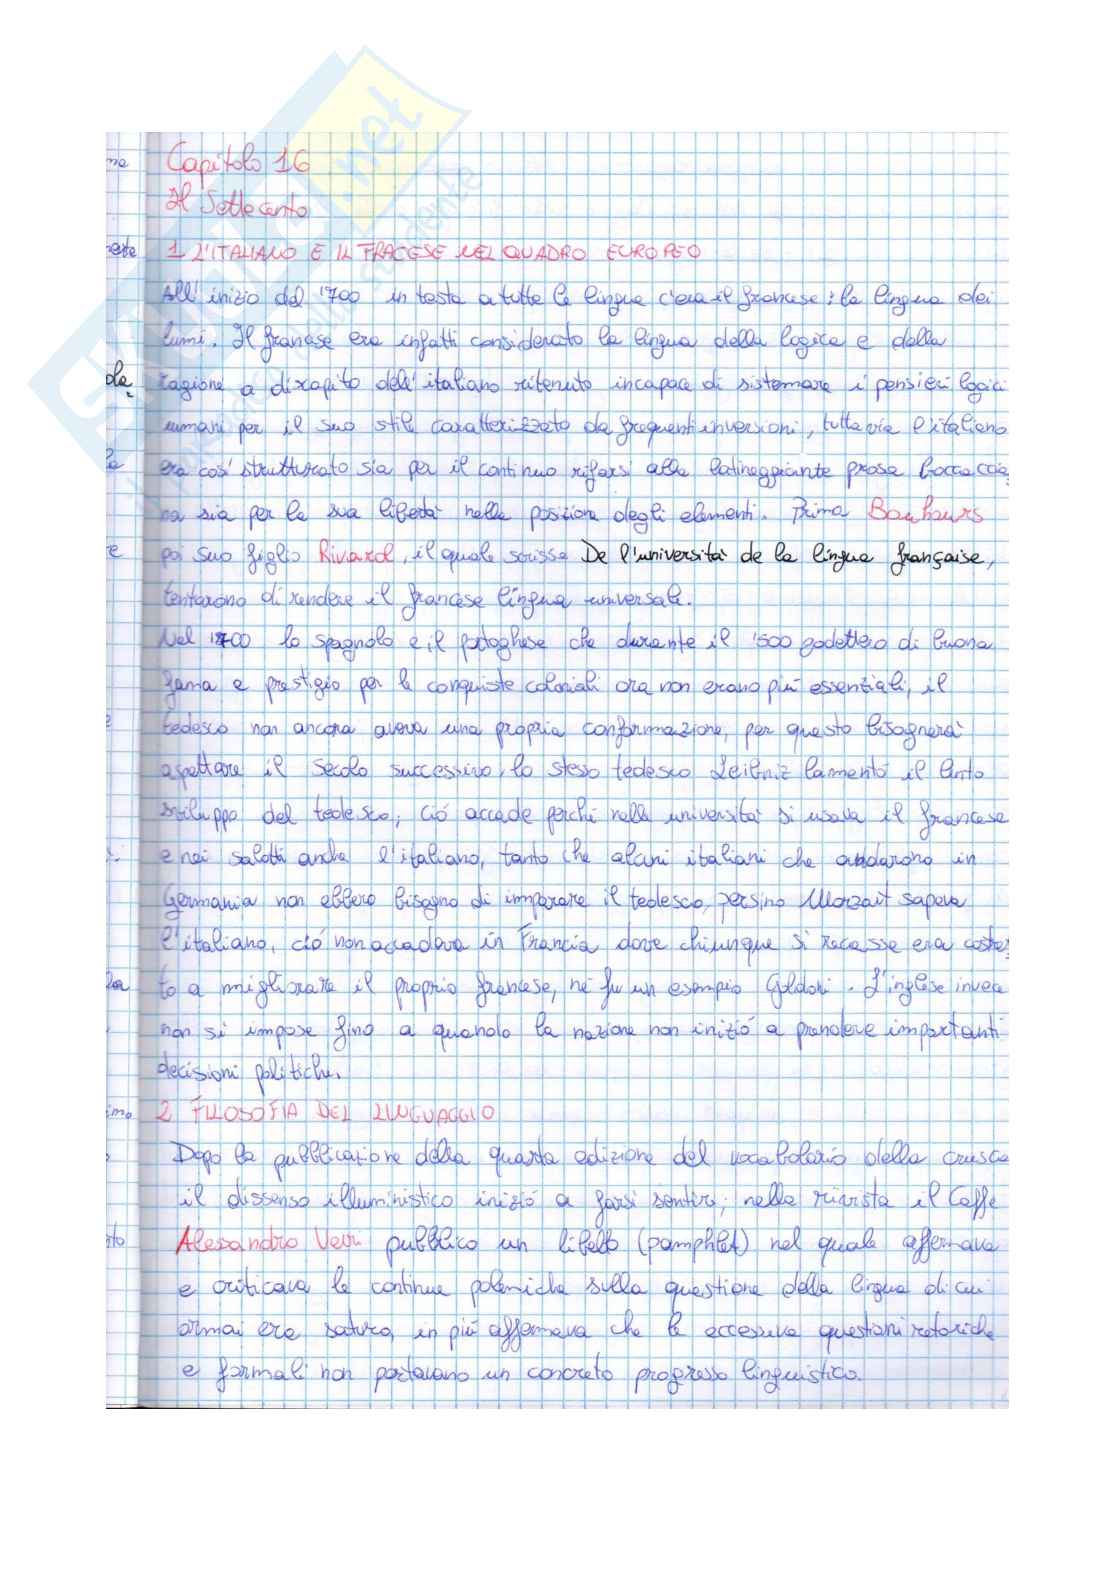 Capitolo 16
Il Settecento
1 L'ITALIANO E IL FRACESE NEL QUADRO EUROPEO
All'inizio del '700 in testa a tutte le lingue c'era il francese: la lingua dei
lumi. Il francese era infatti considerato la lingua della logica e della
ragione a discapito dell'italiano ritenuto incapace di sistemare i pensieri logici
umani per il suo stile caratterizzato da frequenti inversioni, tuttavia l'italiano
era così strutturato sia per il continuo rifarsi alla latineggiante prosa boccaccia
na sia per la sua libertà nella posizione degli elementi. Prima Bouhours
poi suo figlio Rivarol, il quale scrisse De l'università de la lingua française,
tentarono di rendere il francese lingua universale.
Nel 1700 lo spagnolo e il portoghese che durante il '500 godettero di buona
fama e prestigio per le conquiste coloniali ora non erano più essenziali, il
tedesco non ancora aveva una propria conformazione, per questo bisognerà
aspettare il secolo successivo, lo stesso tedesco Leibniz lamentò il lento
sviluppo del tedesco, ciò accade perché nelle università si usava il francese
e nei salotti anche l'italiano, tanto che alcuni italiani che andarono in
Germania non ebbero bisogno di imparare il tedesco, persino Morzait sapeva
l'italiano, ciò non accadeva in Francia dove chiunque si recasse era costre
to a migliorare il proprio francese, ne fu un esempio Goldoni. L'inglese invece
non si impose fino a quando la nazione non iniziò a prendere importanti
decisioni politiche.
2 FILOSOFIA DEL LINGUAGGIO
Dopo la pubblicazione della quarta edizione del vocabolario della crusca
il dissenso illuministico iniziò a farsi sentire; nella rivista il Caffe
Alessandro Verri pubblico un libello (pamphlet) nel quale affermava
e criticava le continue polemiche sulla questione della lingua di cui
ormai era saturo, in più affermava che le eccessive questioni retoriche
e formali non portavano un concreto progresso linguistico.